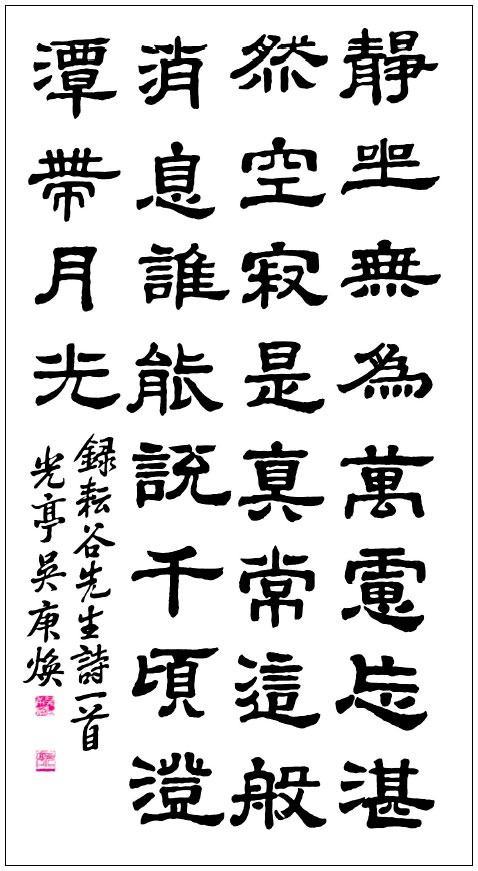 靜坐無為萬慮忘湛
然空寂是真常這般
消息誰能說千頃澄
潭帶月光
錄耘谷先生詩一首
光亭吳庚煥